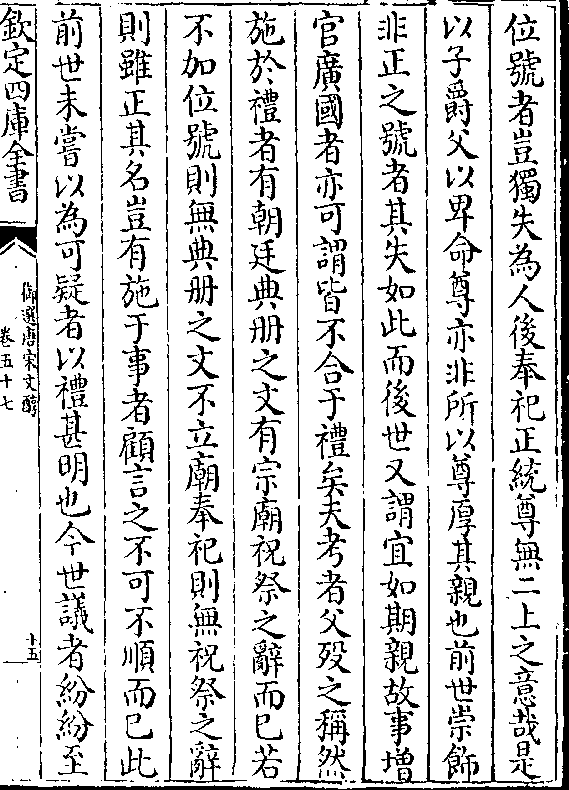 位號者豈獨失為人後奉祀正統尊無二上之意哉是
以子爵父以卑命尊亦非所以尊厚其親也前世崇飾
非正之號者其失如此而後世又謂宜如期親故事增
官廣國者亦可謂皆不合于禮矣夫考者父歿之稱然
施於禮者有朝廷典册之文有宗廟祝祭之辭而已若
不加位號則無典册之文不立廟奉祀則無祝祭之辭
則雖正其名豈有施于事者顧言之不可不順而已此
前世未嘗以為可疑者以禮甚明也今世議者紛紛至
欽定四庫全書
御選唐宋文醇
卷五十七
十五